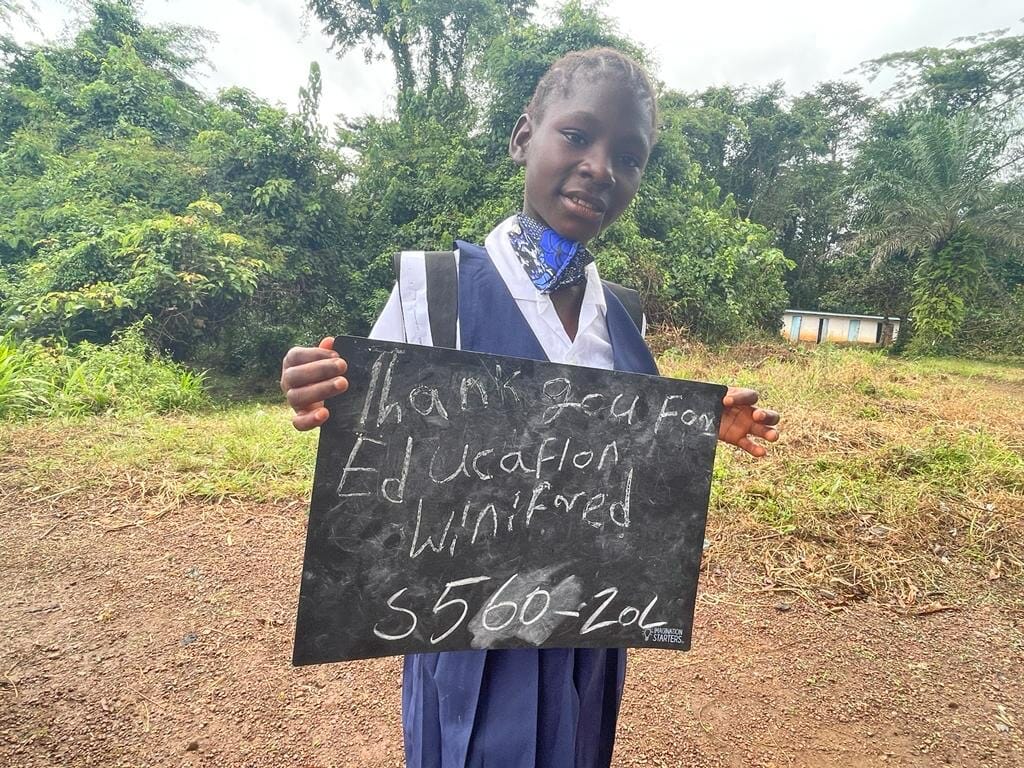 Thank you For
Education
Winifred
S560-20L
IMAGINATION
STARTERS